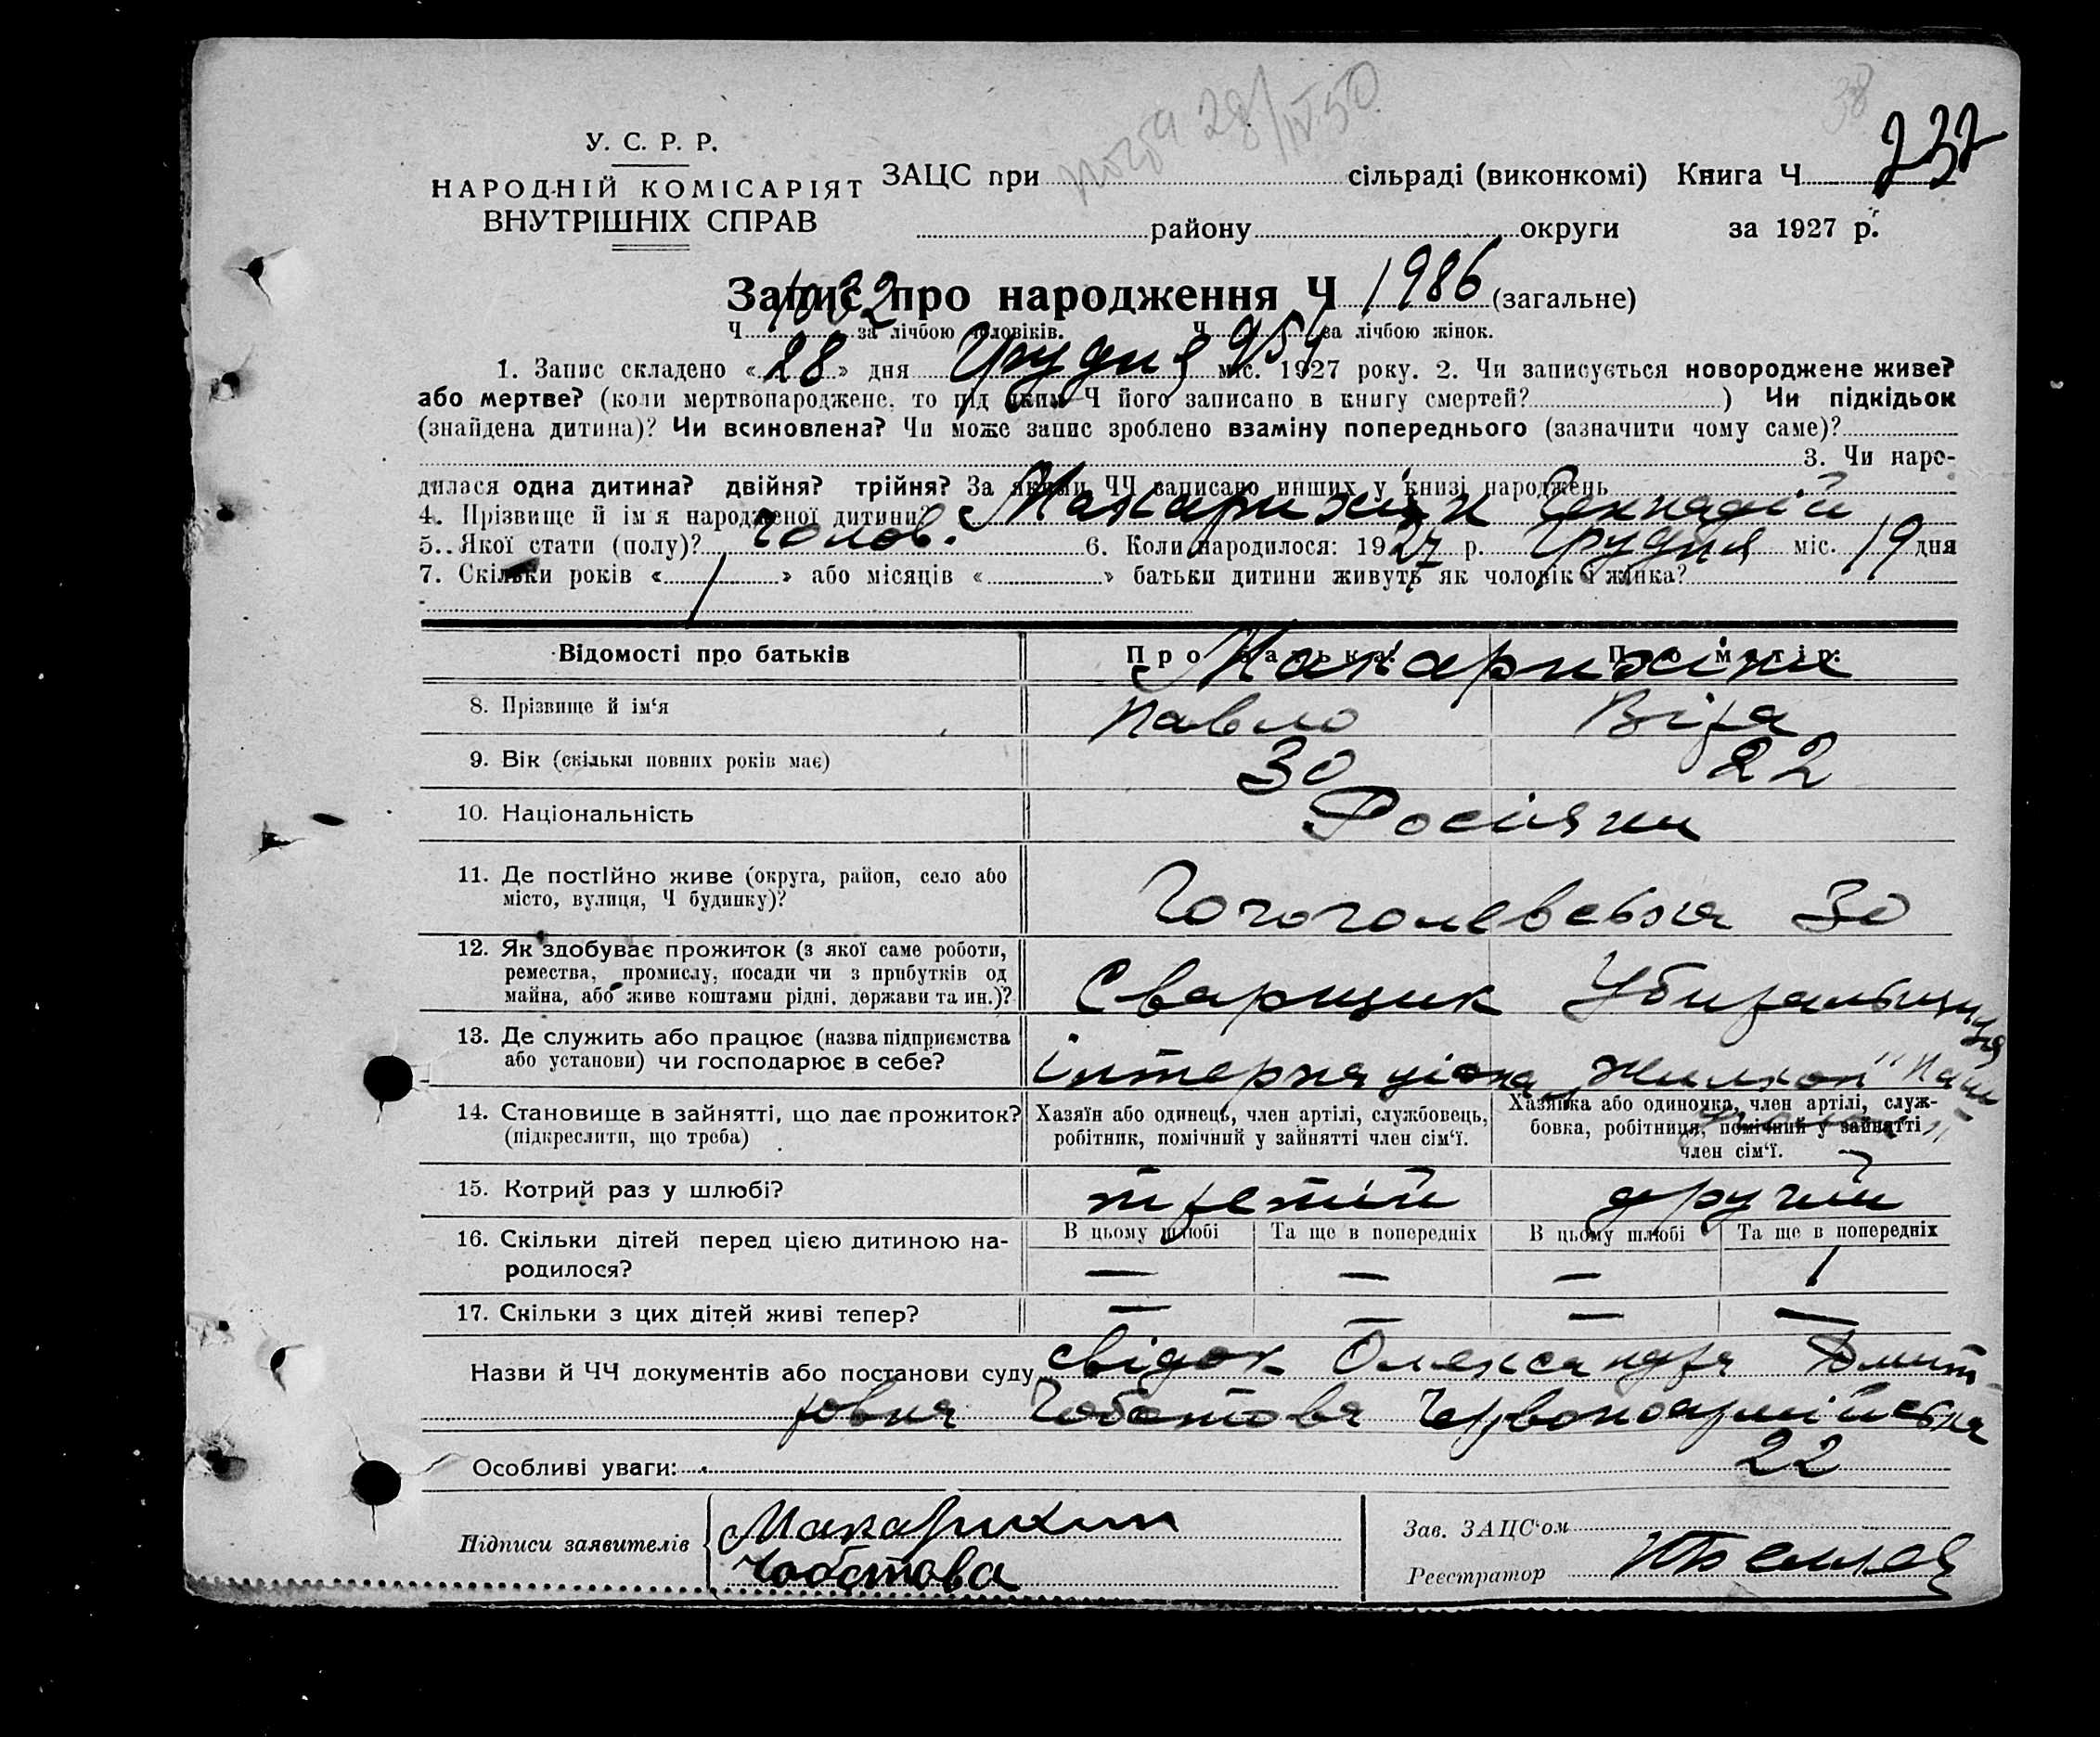 28/IV.50
38
232
У. С. Р. Р.
НАРОДНІЙ КОМІСАРІЯТ
ВНУТРІШНІХ СПРАВ
ЗАЦС при сільраді (виконкомі) Книга Ч
району округи за 1927 р.
Запис про народження Ч 1986 (загальне)
Ч 1032 за лічбою чоловіків. Ч 954 за лічбою жінок.
1. Запис складено «28» дня Грудня міс. 1927 року. 2. Чи записується новороджене живе?
або мертве? (коли мертвонароджене, то під яким Ч його записано в книгу смертей? ) Чи підкідьок
(знайдена дитина)? Чи всиновлена? Чи може запис зроблено взаміну попереднього (зазначити чому саме)?
3. Чи наро-
дилася одна дитина? двійня? трійня? За якими ЧЧ записано инших у книзі народжень
4. Прізвище й ім'я народженої дитини? Макарихин Генадій
5. Якої стати (полу)? чолов. 6. Коли народилося: 1927 р. Грудня міс. 19 дня
7. Скільки років « 1 » або місяців « » батьки дитини живуть як чоловік і жінка?
Відомості про батьків Про батька: Про матір:
Макарихіни
8. Прізвище й ім'я Павло Віра
9. Вік (скільки повних років має) 30 22
10. Національність Росіяни
11. Де постійно живе (округа, район, село або
місто, вулиця, Ч будинку)? Гогоголевська 30
12. Як здобуває прожиток (з якої саме роботи,
ремества, промислу, посади чи з прибутків од
майна, або живе коштами рідні, держави та ин.)? Сварщик Убиральщиця
13. Де служить або працює (назва підприємства
або установи) чи господарює в себе? Інтернаціона Жилкоп
14. Становище в зайнятті, що дає прожиток?
(підкреслити, що треба)
Хазяїн або одинець, член артілі, службовець,
робітник, помічний у зайнятті член сім'ї.
Хазяйка або одиночка, член артілі, служ-
бовка, робітниця, помічний у зайнятті
член сім'ї.
15. Котрий раз у шлюбі? третій другий
16. Скільки дітей перед цією дитиною на-
родилося?
В цьому шлюбі Та ще в попередніх В цьому шлюбі Та ще в попередніх
— — — 1
17. Скільки з цих дітей живі тепер? — — — —
Назви й ЧЧ документів або постанови суду свідок Олександра Дмит
ровна Чоботова Червоноармійська
Особливі уваги: 22
Підписи заявителів Макарихин
Чоботова
Зав. ЗАЦС'ом
Реєстратор